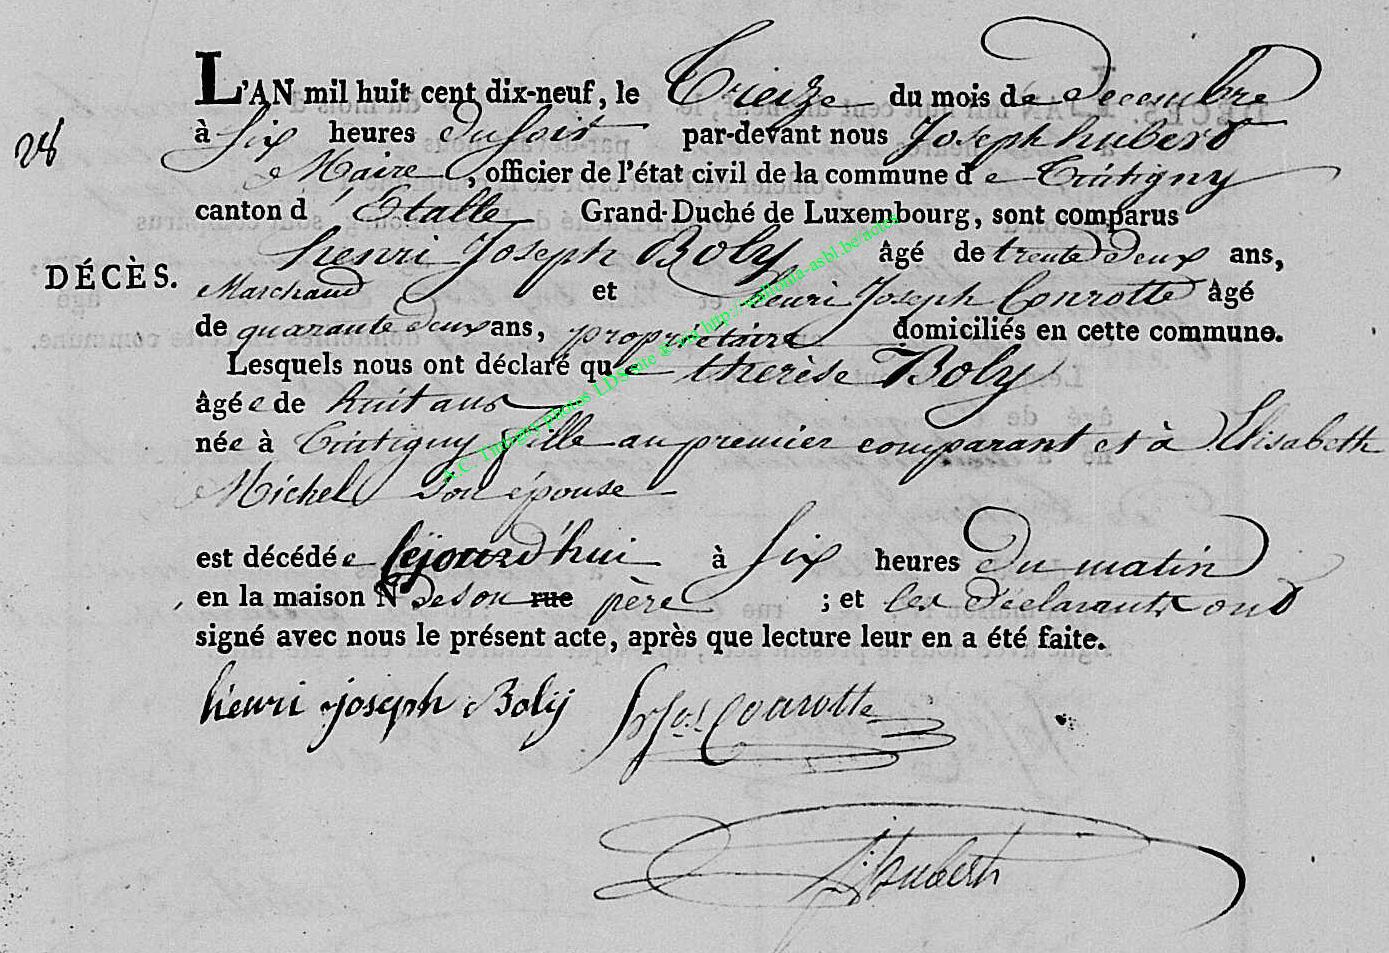 L'AN mil huit cent dix-neuf, le Treize du mois de decembre
28
à Six heures du soir par-devant nous Joseph hubert
Maire, officier de l'état civil de la commune de Tintigny
canton d'Etalle Grand-Duché de Luxembourg, sont comparus
henri Joseph Boly âgé de trente deux ans,
DÉCÈS.
Marchand et henri Joseph Conrotte âgé
de quarante deux ans, propriétaire domiciliés en cette commune.
Lesquels nous ont déclaré que therèse Boly
âgée de huit ans
née à Tintigny fille au premier comparant et à Elisabeth
Michel son épouse
est décédée cejourd'hui à six heures du matin
en la maison N° de son rue père ; et les déclarants ont
signé avec nous le présent acte, après que lecture leur en a été faite.
henri joseph Bolÿ Conrotte
J hubert
A.C. Tintigny photos LDS site & via http://wallonia-asbl.be/actes